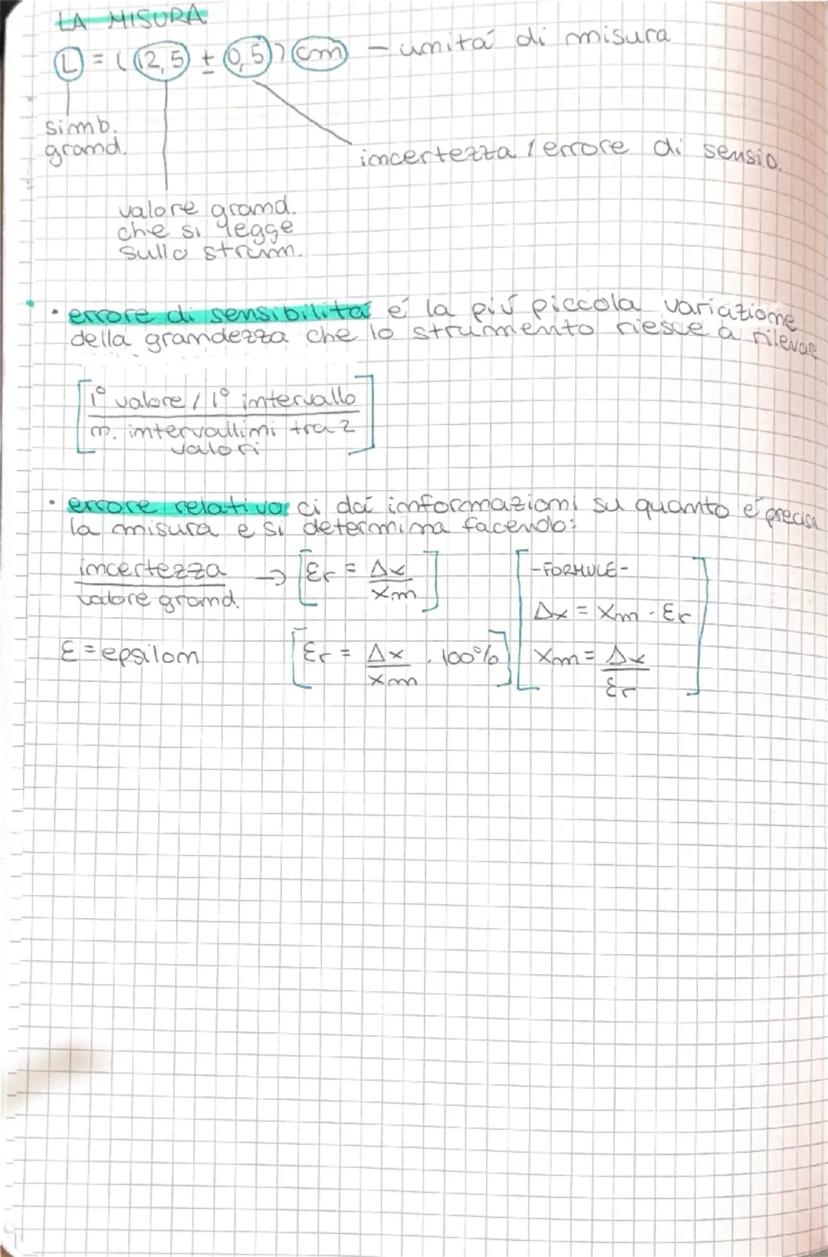 LA MISURA
L = (12,5 ± 0,5) cm – unità di misura
simb.
grand.
incertezza / errore di sensib.
valore grand.
che si legge
sullo strum.
• errore di sensibilità é la più piccola variazione
della grandezza che lo strumento riesce a rilevare
1° valore / 1° intervallo
n. intervallini tra 2
valori
• errore relativo ci dà informazioni su quanto é precisa
la misura e si determina facendo:
incertezza / valore grand. → [Ɛr = Δx / xm]
Ɛ = epsilon [Ɛr = Δx / xm · 100%]
-FORMULE-
Δx = xm · Ɛr
xm = Δx / Ɛr